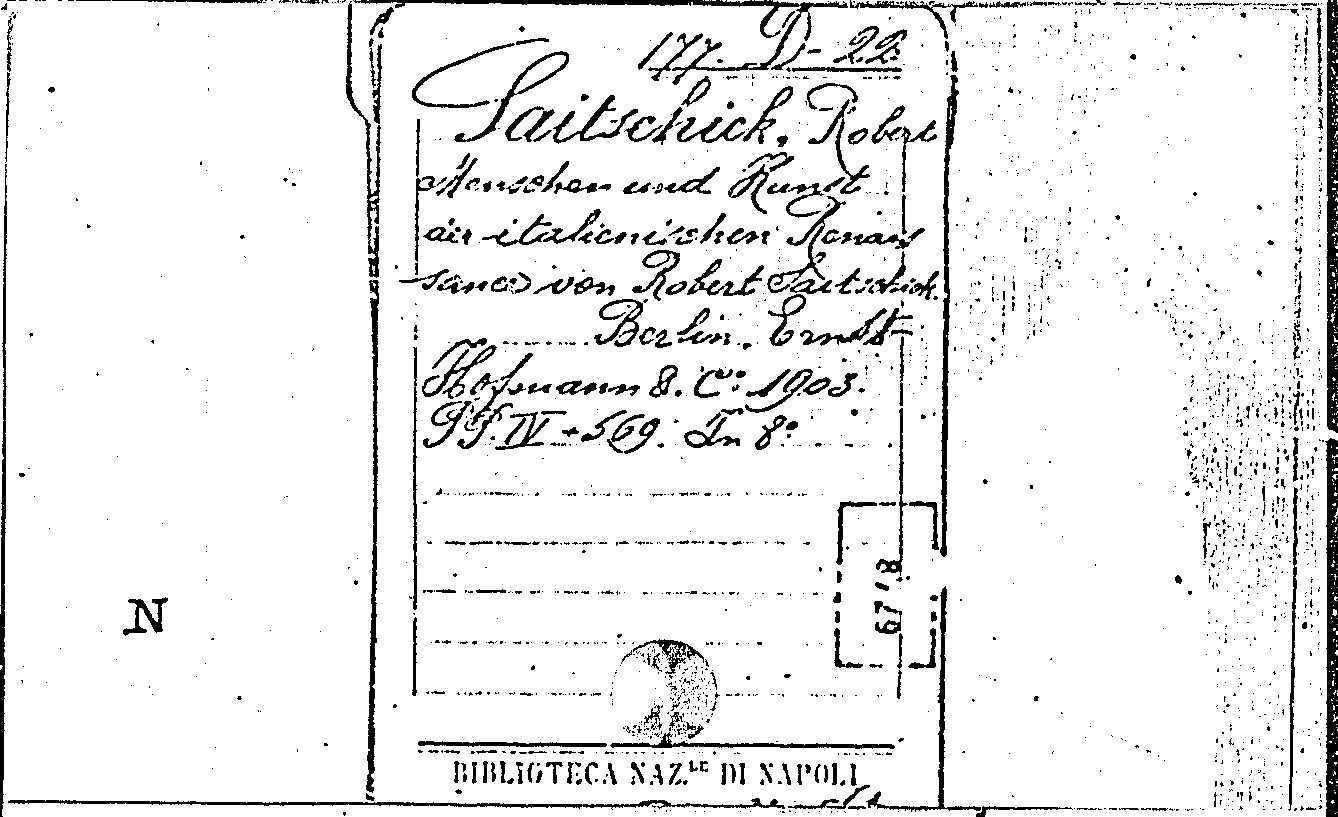 177. D- 22.
Saitschick, Robert
Menschen und Kunst
der italienischen Renais
sance von Robert Saitschick.
Berlin, Ernst
Hofmann & C.º 1903.
PP. IV - 569. In 8º
67/8
N
BIBLIOTECA NAZ.LE DI NAPOLI